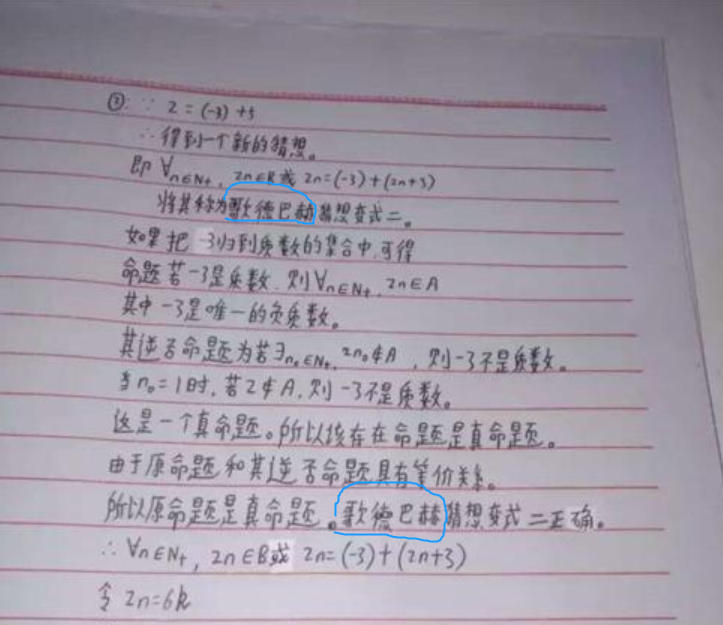 ②∵ 2=(-3)+5
∴得到一个新的猜想。
即∀n∈N+, 2n∈B或 2n=(-3)+(2n+3)
将其称为歌德巴赫猜想变式二。
如果把-3归到质数的集合中,可得
命题若-3是质数,则∀n∈N+, 2n∈A
其中-3是唯一的负质数。
其逆否命题为若∃n₀∈N+, 2n₀∉A,则-3不是质数。
当n₀=1时,若2∉A,则-3不是质数。
这是一个真命题。所以该存在命题是真命题。
由于原命题和其逆否命题具有等价关系。
所以原命题是真命题。歌德巴赫猜想变式二正确。
∴∀n∈N+, 2n∈B或 2n=(-3)+(2n+3)
令 2n=6k